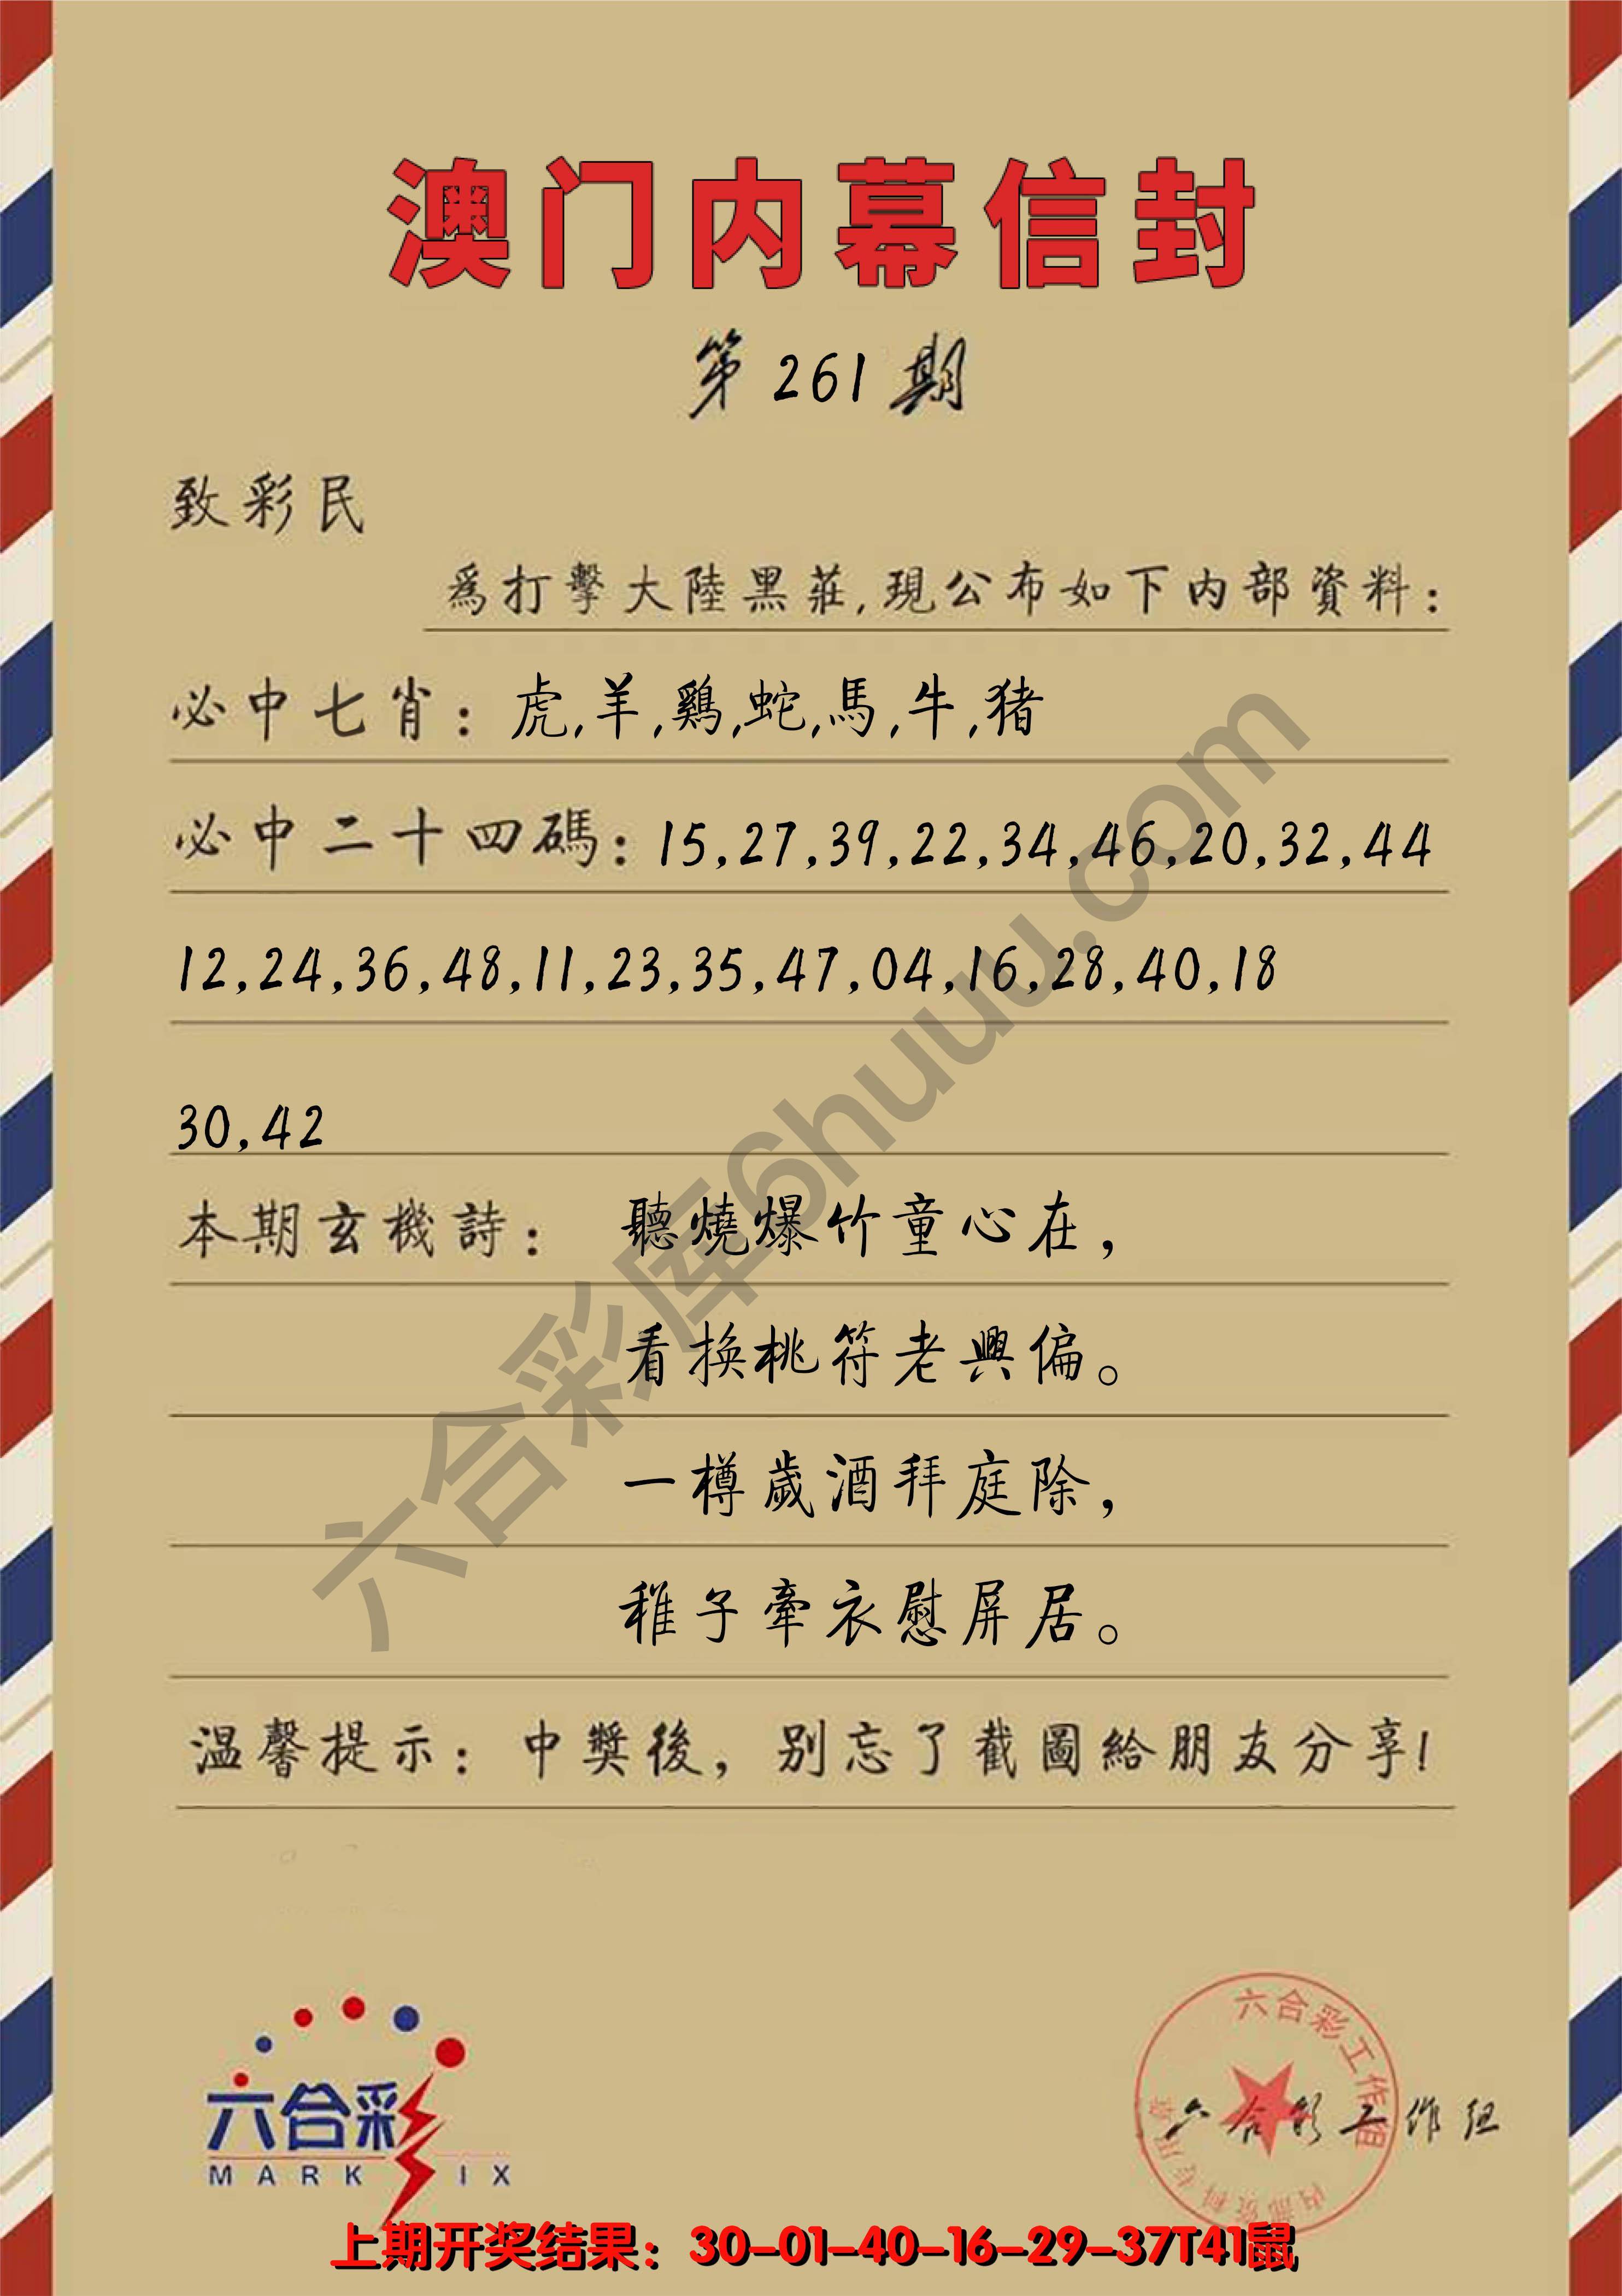 澳门内幕信封
第261期
致彩民
爲打擊大陸黑莊,現公布如下内部資料:
必中七肖: 虎,羊,鷄,蛇,馬,牛,猪
必中二十四碼: 15,27,39,22,34,46,20,32,44
12,24,36,48,11,23,35,47,04,16,28,40,18
30,42
本期玄機詩: 聽燒爆竹童心在,
看换桃符老興偏。
一樽歲酒拜庭除,
稚子牽衣慰屏居。
温馨提示: 中獎後, 别忘了截圖給朋友分享!
六合彩库6huuu.com
六合彩
MARK IX
六合彩工作组
六合彩工作组
上期开奖结果: 30-01-40-16-29-37T41鼠